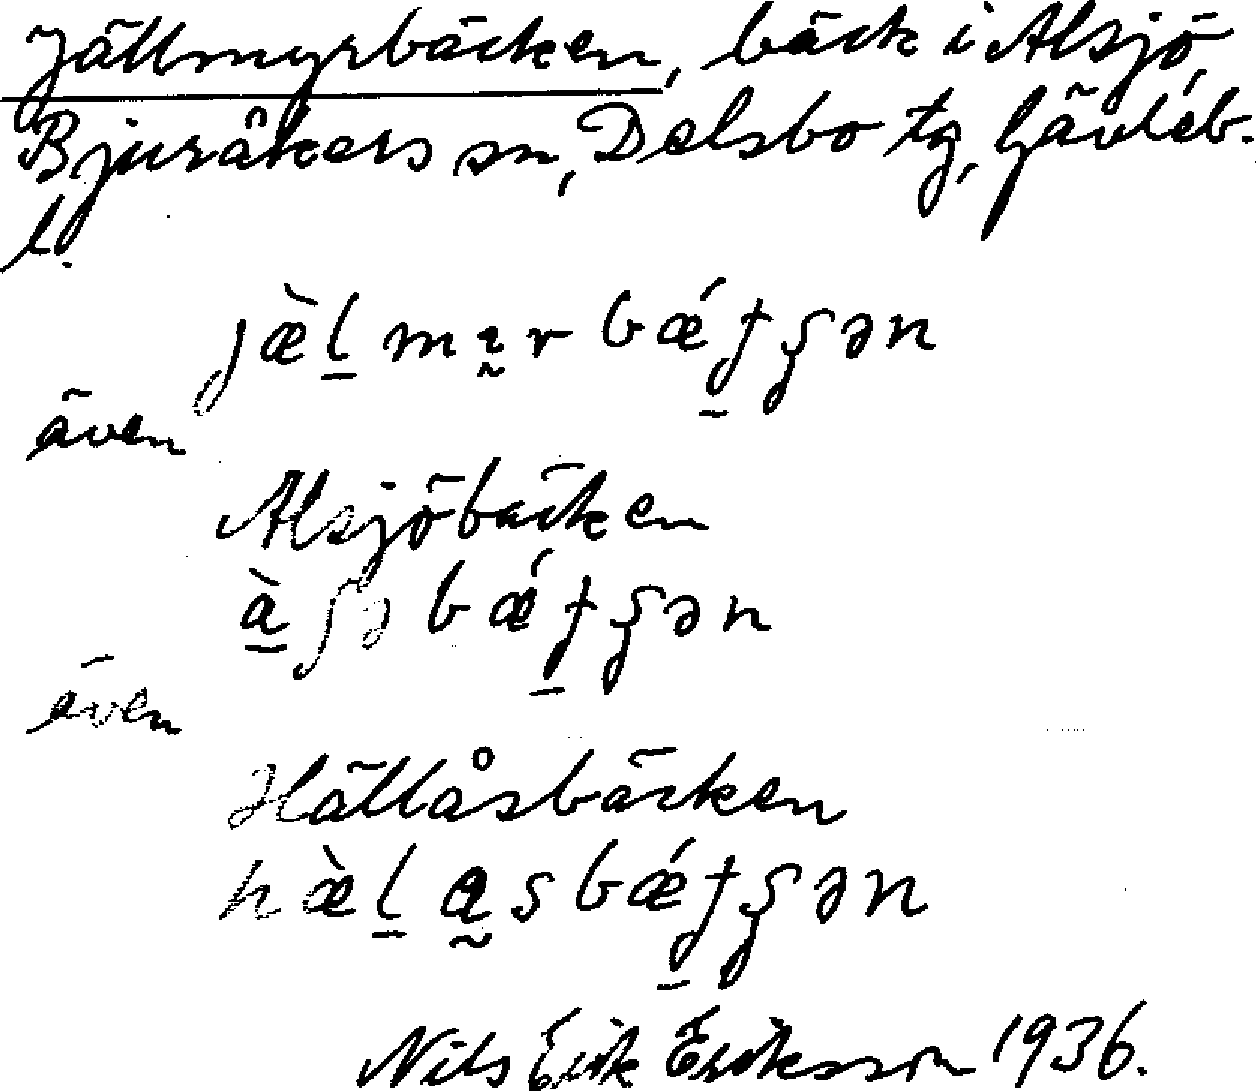 Jällmyrbäcken, bäck i Alsjö,
Bjuråkers sn, Delsbo tg, Gävleb.
l.
jæ̀l̠ mɪ̰r bǽɟ̠ʂən
även
Alsjöbäcken
à̠ʃə bǽɟ̠ʂən
även
Hällåsbäcken
hæ̀l̠ a̰sbǽɟ̠ʂən
Nils Erik Eriksson 1936.